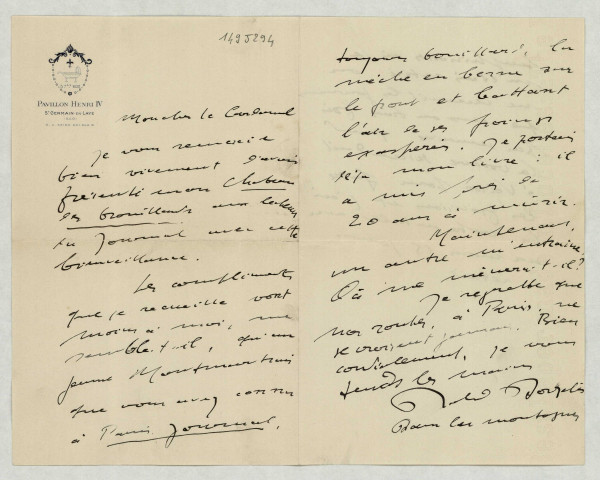 1495294
PAVILLON HENRI IV
ST GERMAIN-EN-LAYE
Mon cher le Cardonnel
Je vous remercie
bien vivement d'avoir
présenté mon Château
des brouillards aux lecteurs
du Journal avec cette
bienveillance.
Les compliments
que je recueille vont
moins à moi, me
semble-t-il, qu'au
jeune Montmartrois
que vous avez connu
à Paris Journal,
toujours bouillant, la
mèche en berne sur
le front et battant
l'air de ses poings
exaspérés. Je portais
déjà mon livre : il
a mis près de
20 ans à mûrir.
Maintenant,
un autre m'entraîne.
Où me mènera-t-il ?
Je regrette que
nos routes, à Paris, ne
se croisent jamais. Bien
cordialement, je vous
tends les mains
Roland Dorgelès